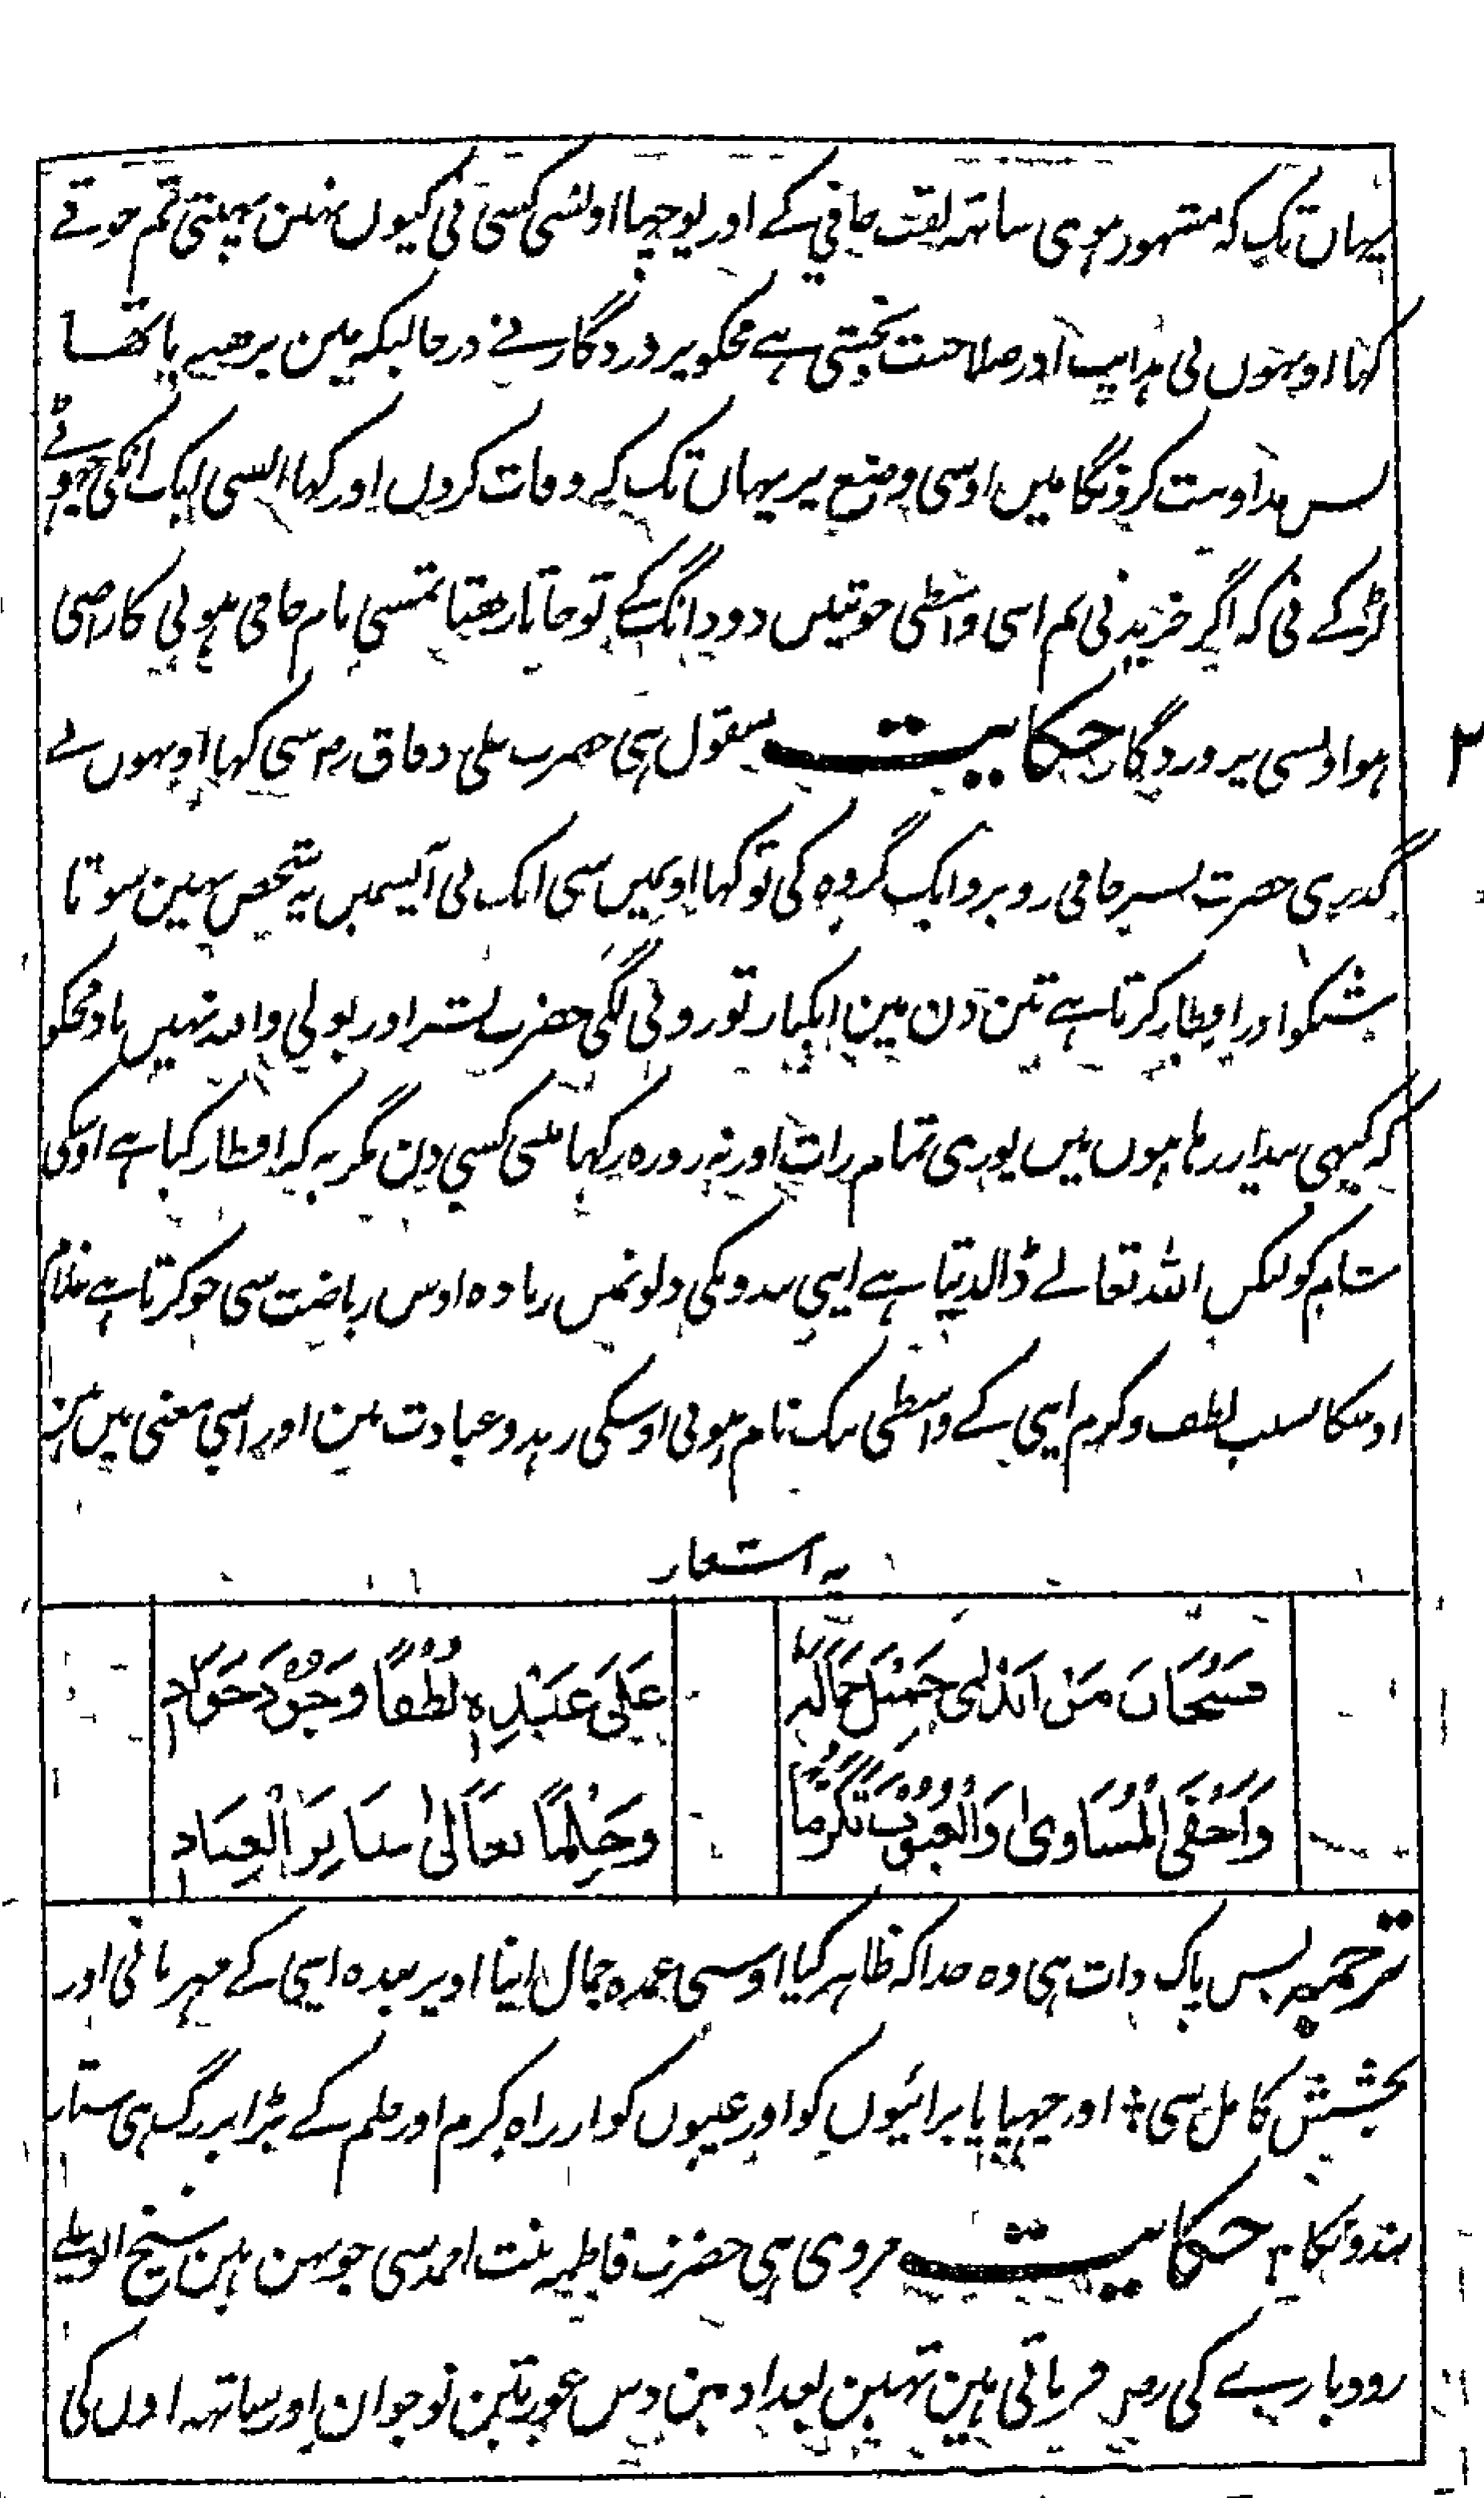 یہاں تک کہ مشہور ہوی ساتہہ لقب حافی کے اور پوچہا اونسی کسی نی کیوں نہین پہنتی تم جوتے
کہا اونہوں نی ہدایت اور صلاحیت بخشی ہے مجکو پروردگار نے درحالیکہ مین برھنے پا تھا
بس مداومت کرونگا میں اوسی وضع پر یہاں تک کہ وفات کروں اور کہا انسی ایک انکی چہوٹے
لڑکے نی کہ اگر خرید نی تم اسی واسطی جوتیں دو دانگ کے تو جاتا رھتا تمسی نام حافی ہونی کا راضی
ہوا اونسی پروردگار حکایت منقول ہی حضرت علی دقاق رح سی کہا اونہوں نے
گذری حضرت بشر حافی روبرو ایک گروہ کی تو کہا اونمیں سی ایک نی آپسمیں یہ شخص نہین سوتا
شبکو اور افطار کرتا ہے تین دن مین ایکبار تو رونی لگی حضرت بشر اور بولی واللہ نہیں یاد مجکو
کہ کبہی بیدار رہا ہوں میں پوری تمام رات اور نہ روزہ رکہا مینی کسی دن مگر یہ کہ افطار کیا ہے اوسکی
شام کو لیکن اللہ تعالے ڈالدیتا ہے اپنی بندونکی دلونمیں زیادہ اوس ریاضت سی جو کرتا ہے غلام
اوسکا بسبب لطف و کرم اپنی کے واسطی نیک نام ہونی اوسکی زہد و عبادت مین اور اسی معنی میں ہین
یہ اشعار
فَسُبْحَانَ مَنْ اَبْدٰی جَمِیْلَ جَمَالِہٖ عَلٰی عَبْدِہٖ لُطْفًا وَجُوْدَ جَوَادٍ
وَاَخْفَی الْمَسَاوِیْ وَالْعُیُوْبَ تَکَرُّمًا وَحِلْمًا تَعَالٰی سَاتِرَ الْعِبَادِ
ترجمہ پس پاک ذات ہی وہ خدا کہ ظاہر کیا اوسی عمدہ جمال اپنا اوپر بندہ اپنی کے مہربانی اور
بخشش کامل سی اور چہپایا برائیوں کو اور عیبوں کو از راہ کرم اور حلم کے بڑا بزرگ ہی ستار
بندونکا حکایت مروی ہی حضرت فاطمہ بنت احمد سی جو بہن ہین شیخ ابو علی
رودباری کی رح فرماتی ہین تہین بغداد مین دس عورتین نوجوان اور ساتہہ اوں کی